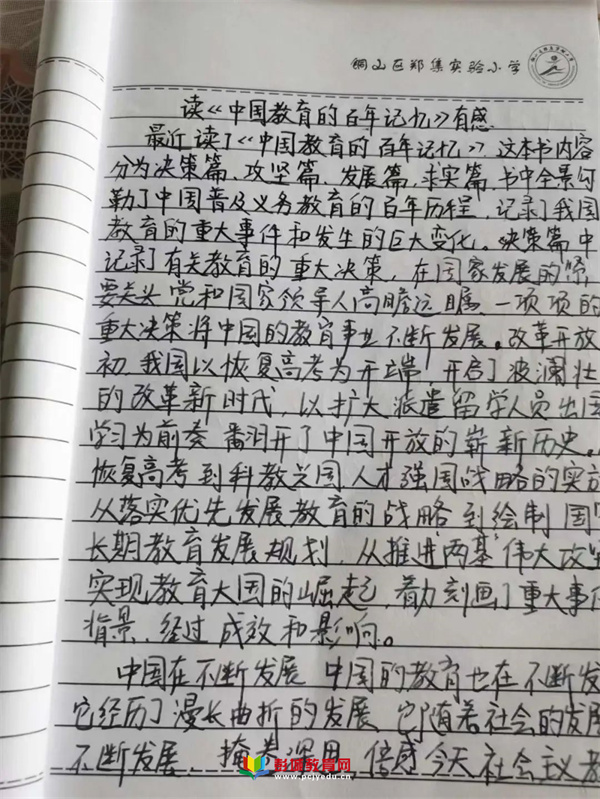 铜山区郑集实验小学
读《中国教育的百年记忆》有感
最近读了《中国教育的百年记忆》,这本书内容
分为决策篇、攻坚篇、发展篇、求实篇,书中全景勾
勒了中国普及义务教育的百年历程,记录了我国
教育的重大事件和发生的巨大变化。决策篇中
记录了有关教育的重大决策,在国家发展的紧
要关头,党和国家领导人高瞻远瞩,一项项的
重大决策将中国的教育事业不断发展。改革开放
初,我国以恢复高考为开端,开启了波澜壮
的改革新时代,以扩大派遣留学人员出国
学习为前奏,翻开了中国开放的崭新历史。
恢复高考到科教兴国、人才强国战略的实施
从落实优先发展教育的战略到绘制国家
长期教育发展规划,从推进"两基"伟大攻坚
实现教育大国的崛起,着力刻画了重大事件
背景、经过、成效和影响。
中国在不断发展,中国的教育也在不断发
它经历了漫长曲折的发展,它随着社会的发展
不断发展,掩卷深思,倍感今天社会主义教
彭城教育网
www.pcjyedu.cn